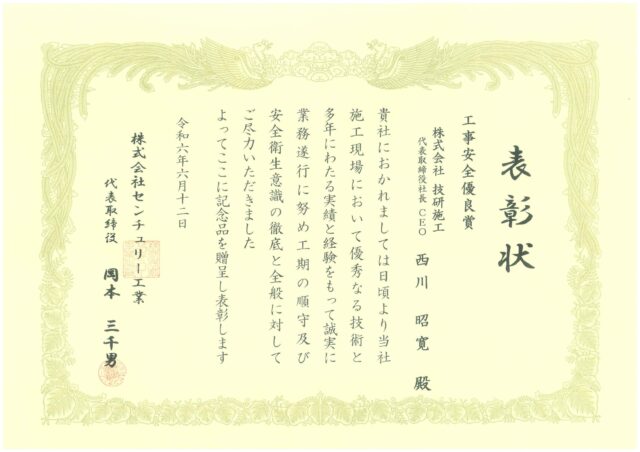 表彰状
工事安全優良賞
株式会社 技研施工
代表取締役社長 CEO 西川 昭寛 殿
貴社におかれましては日頃より当社
施工現場において優秀なる技術と
多年にわたる実績と経験をもって誠実に
業務遂行に努め工期の順守及び
安全衛生意識の徹底と全般に対して
ご尽力いただきました
よってここに記念品を贈呈し表彰します
令和六年六月十二日
株式会社センチュリー工業
代表取締役 岡本 三千男